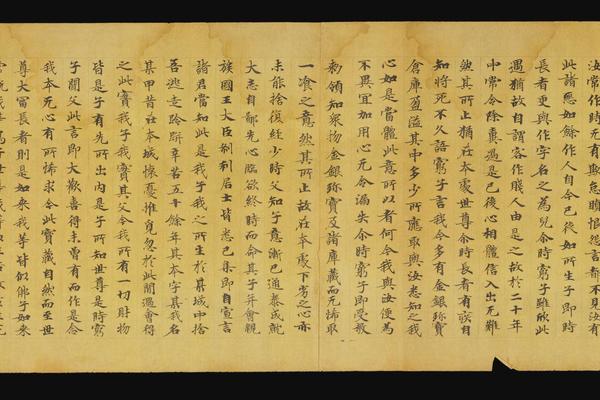 汝常作時无有欺怠瞋恨怨言都不見汝有
此諸惡如餘作人自今已後如所生子即時
長者更與作字名之為兒尒時窮子雖欣此
遇猶故自謂客作賤人由是之故於二十年
中常令除糞過是已後心相體信入出无難
然其所止猶在本處世尊尒時長者有疾自
知將死不久語窮子言我今多有金銀珎寶
倉庫盈溢其中多少所應取與汝悉知之我
心如是當體此意所以者何今我與汝便為
不異宜加用心无令漏失尒時窮子即受教
勑領知衆物金銀珎寶及諸庫藏而无悕取
一飡之意然其所止故在本處下劣之心亦
未能捨復経少時父知子意漸已通泰成就
大志自鄙先心臨欲終時而命其子并會親
族國王大臣剎利居士皆悉已集即自宣言
諸君當知此是我子我之所生於某城中捨
吾逃走跉跰辛苦五十餘年其本字某我名
某甲昔在本城懷憂推覓忽於此間遇會得
之此實我子我實其父今我所有一切財物
皆是子有先所出内是子所知世尊是時窮
子聞父此言即大歡喜得未曾有而作是念
我本无心有所悕求今此寶藏自然而至世
尊大富長者則是如來我等皆似佛子如來